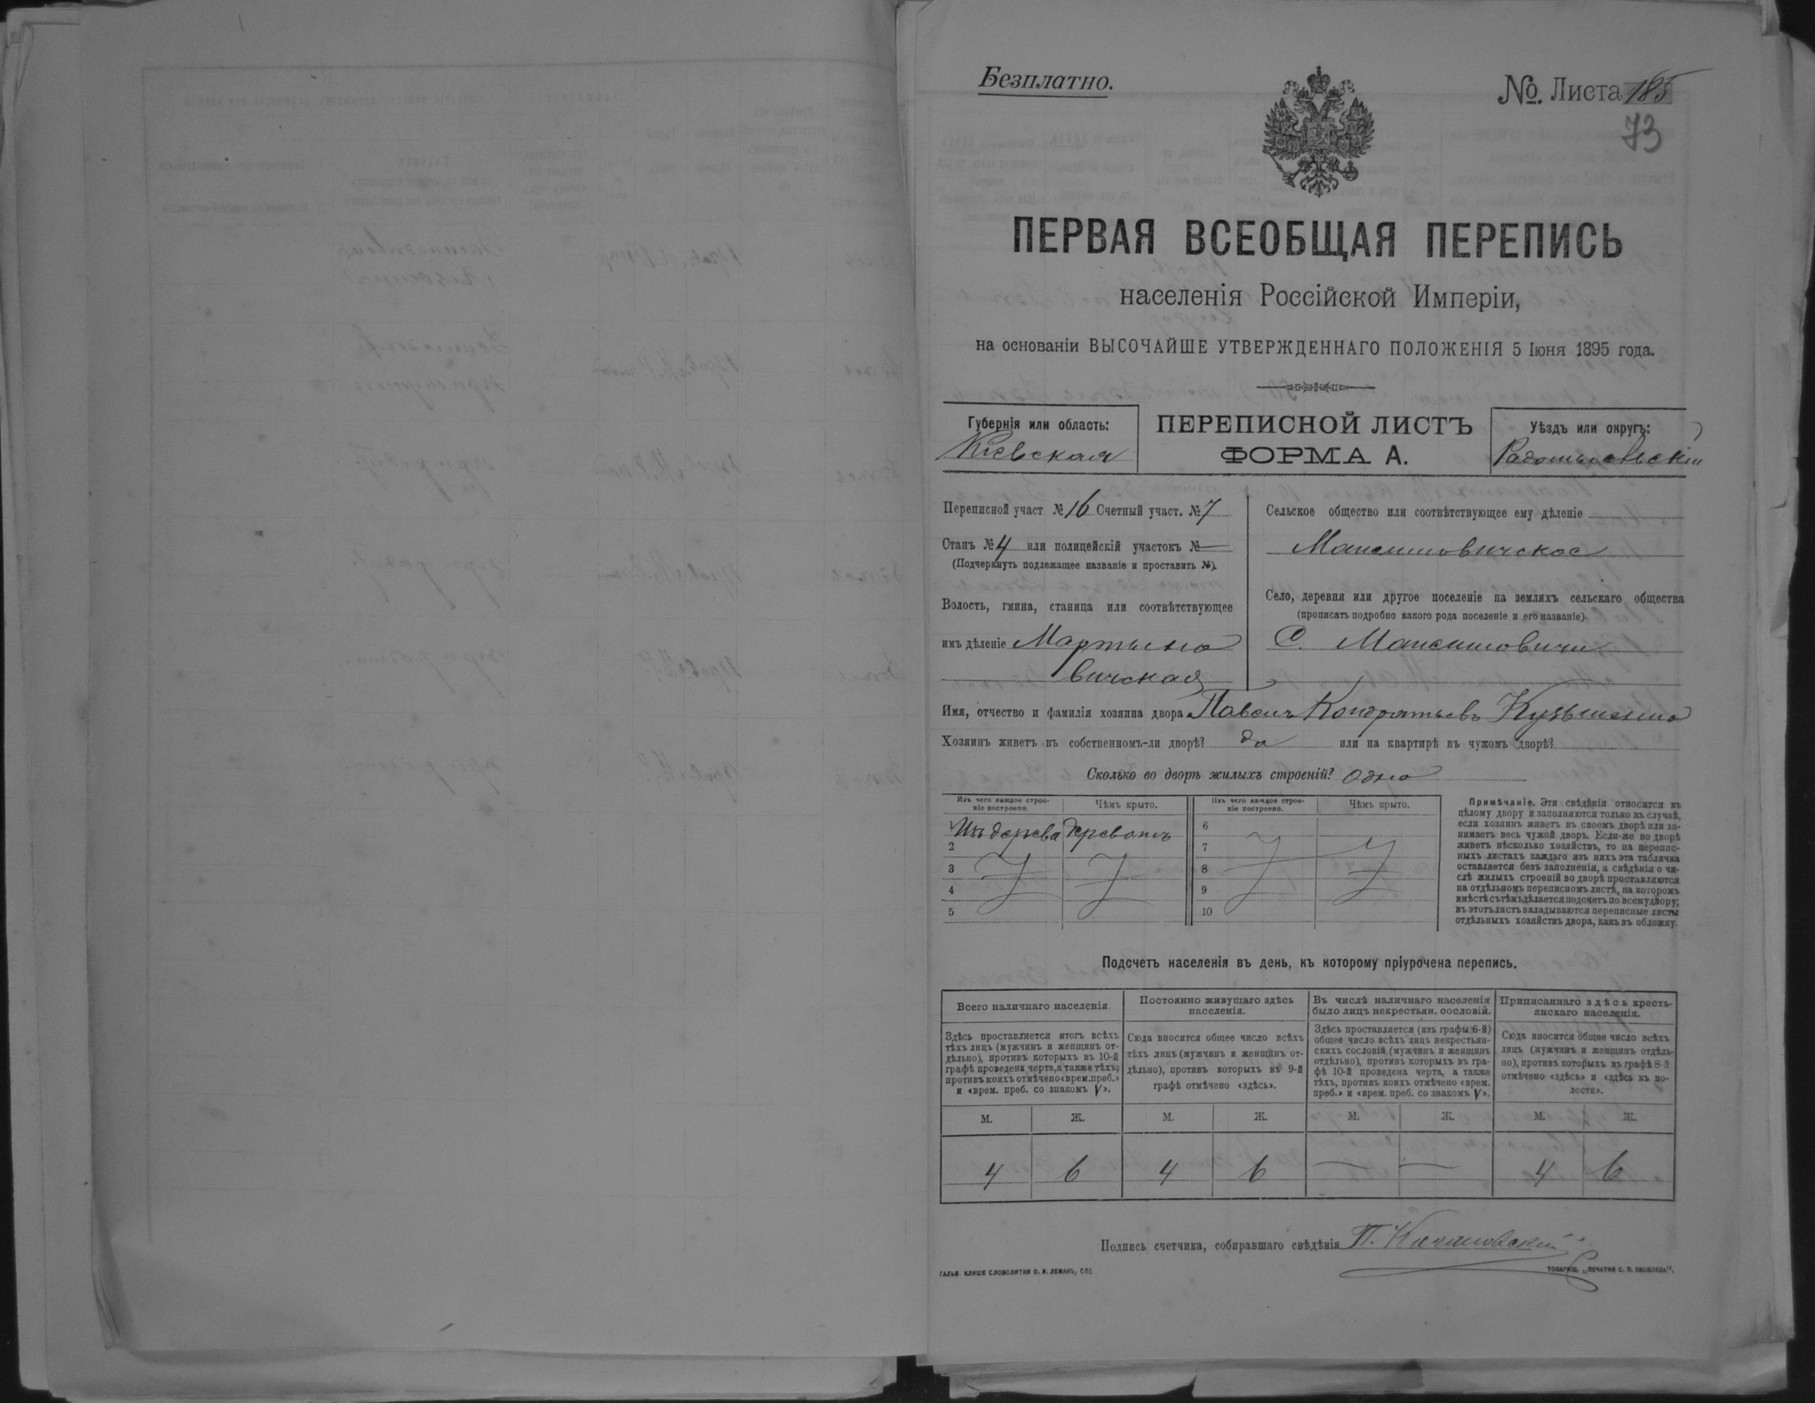 Безплатно.
№. Листа 185
73
ПЕРВАЯ ВСЕОБЩАЯ ПЕРЕПИСЬ
населенія Россійской Имперіи,
на основаніи ВЫСОЧАЙШЕ УТВЕРЖДЕННАГО ПОЛОЖЕНІЯ 5 Іюня 1895 года.
Губернія или область:
Кіевская
ПЕРЕПИСНОЙ ЛИСТЪ
ФОРМА А.
Уѣздъ или округъ:
Радомысльскій
Переписной участ № 16 Счетный участ. № 7
Станъ № 4 или полицейскій участокъ № —
(Подчеркнуть подлежащее названіе и проставить №).
Волость, гмина, станица или соотвѣтствующее
имъ дѣленіе Мартыно
вичская
Сельское общество или соотвѣтствующее ему дѣленіе
Максимовичское
Село, деревня или другое поселеніе на земляхъ сельскаго общества
(прописать подробно какого рода поселеніе и его названіе).
С. Максимовичи
Имя, отчество и фамилія хозяина двора Павелъ Кондратьевъ Кузьменко
Хозяинъ живетъ въ собственномъ-ли дворѣ? да или на квартирѣ въ чужомъ дворѣ?
Сколько во дворѣ жилыхъ строеній? Одно
Изъ чего каждое строе-
ніе построено.
Чѣмъ крыто.
Изъ чего каждое строе-
ніе построено.
Чѣмъ крыто.
1 Изъ дерева Деревомъ
2
3
4
5
6
7
8
9
10
Примѣчаніе. Эти свѣдѣнія относятся къ
цѣлому двору и заполняются только въ случаѣ,
если хозяинъ живетъ въ своемъ дворѣ или за-
нимаетъ весь чужой дворъ. Если-же во дворѣ
живетъ нѣсколько хозяйствъ, то на перепис-
ныхъ листахъ каждаго изъ нихъ эта табличка
оставляется безъ заполненія, а свѣдѣнія о чи-
слѣ жилыхъ строеній во дворѣ проставляются
на отдѣльномъ переписномъ листѣ, на которомъ
вмѣстѣ съ тѣмъ дѣлается подсчетъ по всему двору;
въ этотъ листъ вкладываются переписные листы
отдѣльныхъ хозяйствъ двора, какъ въ обложку.
Подсчетъ населенія въ день, къ которому пріурочена перепись.
Всего наличнаго населенія.
Здѣсь проставляется итогъ всѣхъ
тѣхъ лицъ (мужчинъ и женщинъ от-
дѣльно), противъ которыхъ въ 10-й
графѣ проведена черта, а также тѣхъ,
противъ коихъ отмѣчено «врем. преб.»
и «врем. преб. со знакомъ V».
Постоянно живущаго здѣсь
населенія.
Сюда вносится общее число всѣхъ
тѣхъ лицъ (мужчинъ и женщинъ от-
дѣльно), противъ которыхъ въ 9-й
графѣ отмѣчено «здѣсь».
Въ числѣ наличнаго населенія
было лицъ некрестьян. сословій.
Здѣсь проставляется (изъ графы 6-й)
общее число всѣхъ лицъ некрестьян-
скихъ сословій (мужчинъ и женщинъ
отдѣльно), противъ которыхъ въ гра-
фѣ 10-й проведена черта, а также
тѣхъ, противъ коихъ отмѣчено «врем.
преб.» и «врем. преб. со знакомъ V».
Приписаннаго здѣсь кресть-
янскаго населенія.
Сюда вносится общее число всѣхъ
лицъ (мужчинъ и женщинъ отдѣль-
но), противъ которыхъ въ графѣ 8-й
отмѣчено «здѣсь» и «здѣсь въ во-
лости».
М. Ж. М. Ж. М. Ж. М. Ж.
4 6 4 6 — — 4 6
Подпись счетчика, собиравшаго свѣдѣнія П. Качановскій
ГАЛЬВ. КЛИШЕ СЛОВОЛИТНИ О. И. ЛЕМАНЪ, СПБ
ТОВАРИЩ. „ПЕЧАТНЯ С. П. ЯКОВЛЕВА“.